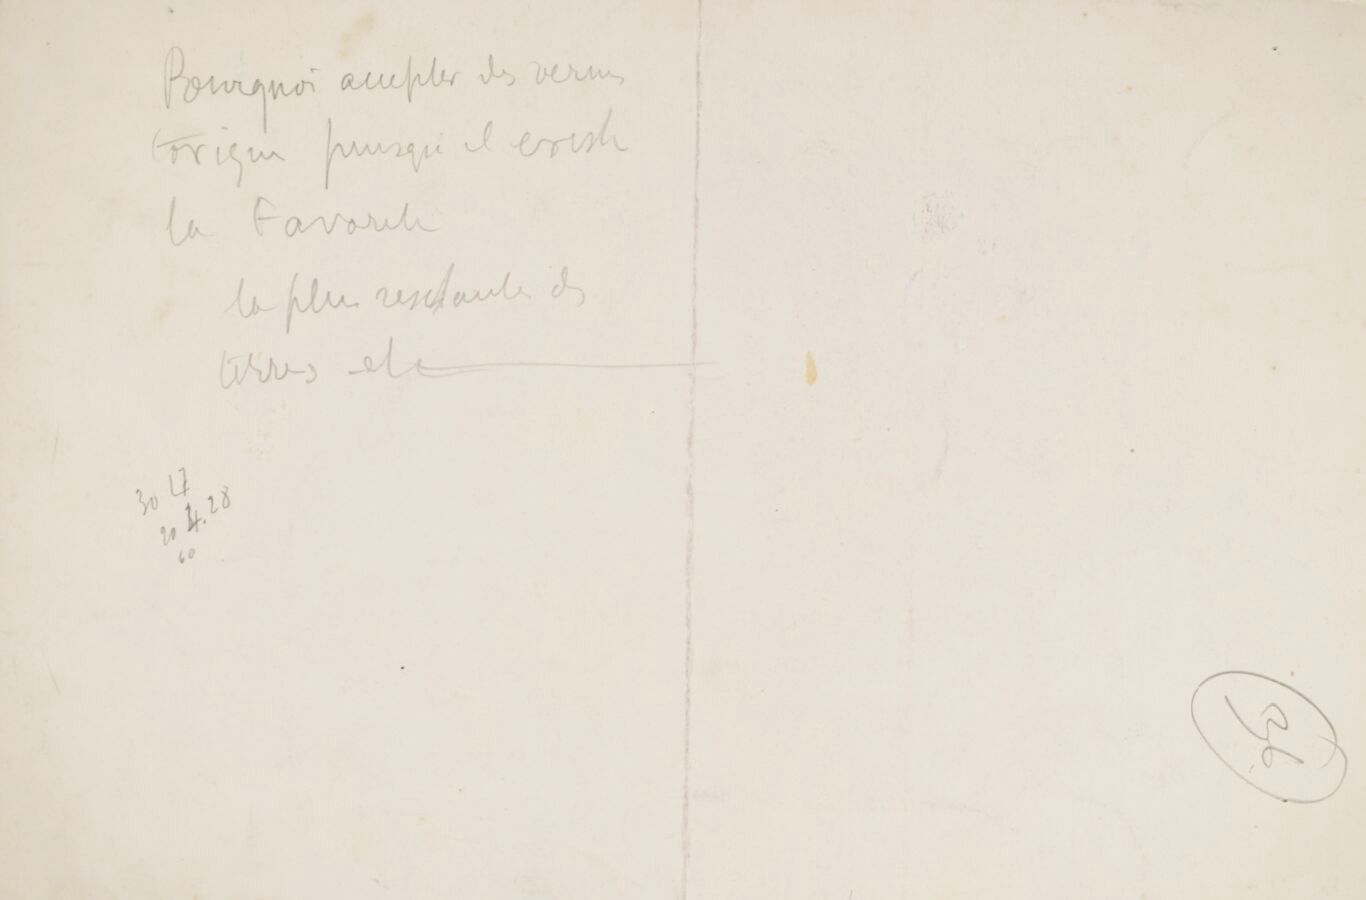 Pourquoi accepter des vernis
toxiques puisqu'il existe
la Favorite
la plus résistante des
terres etc
30 47
20 4.28
60